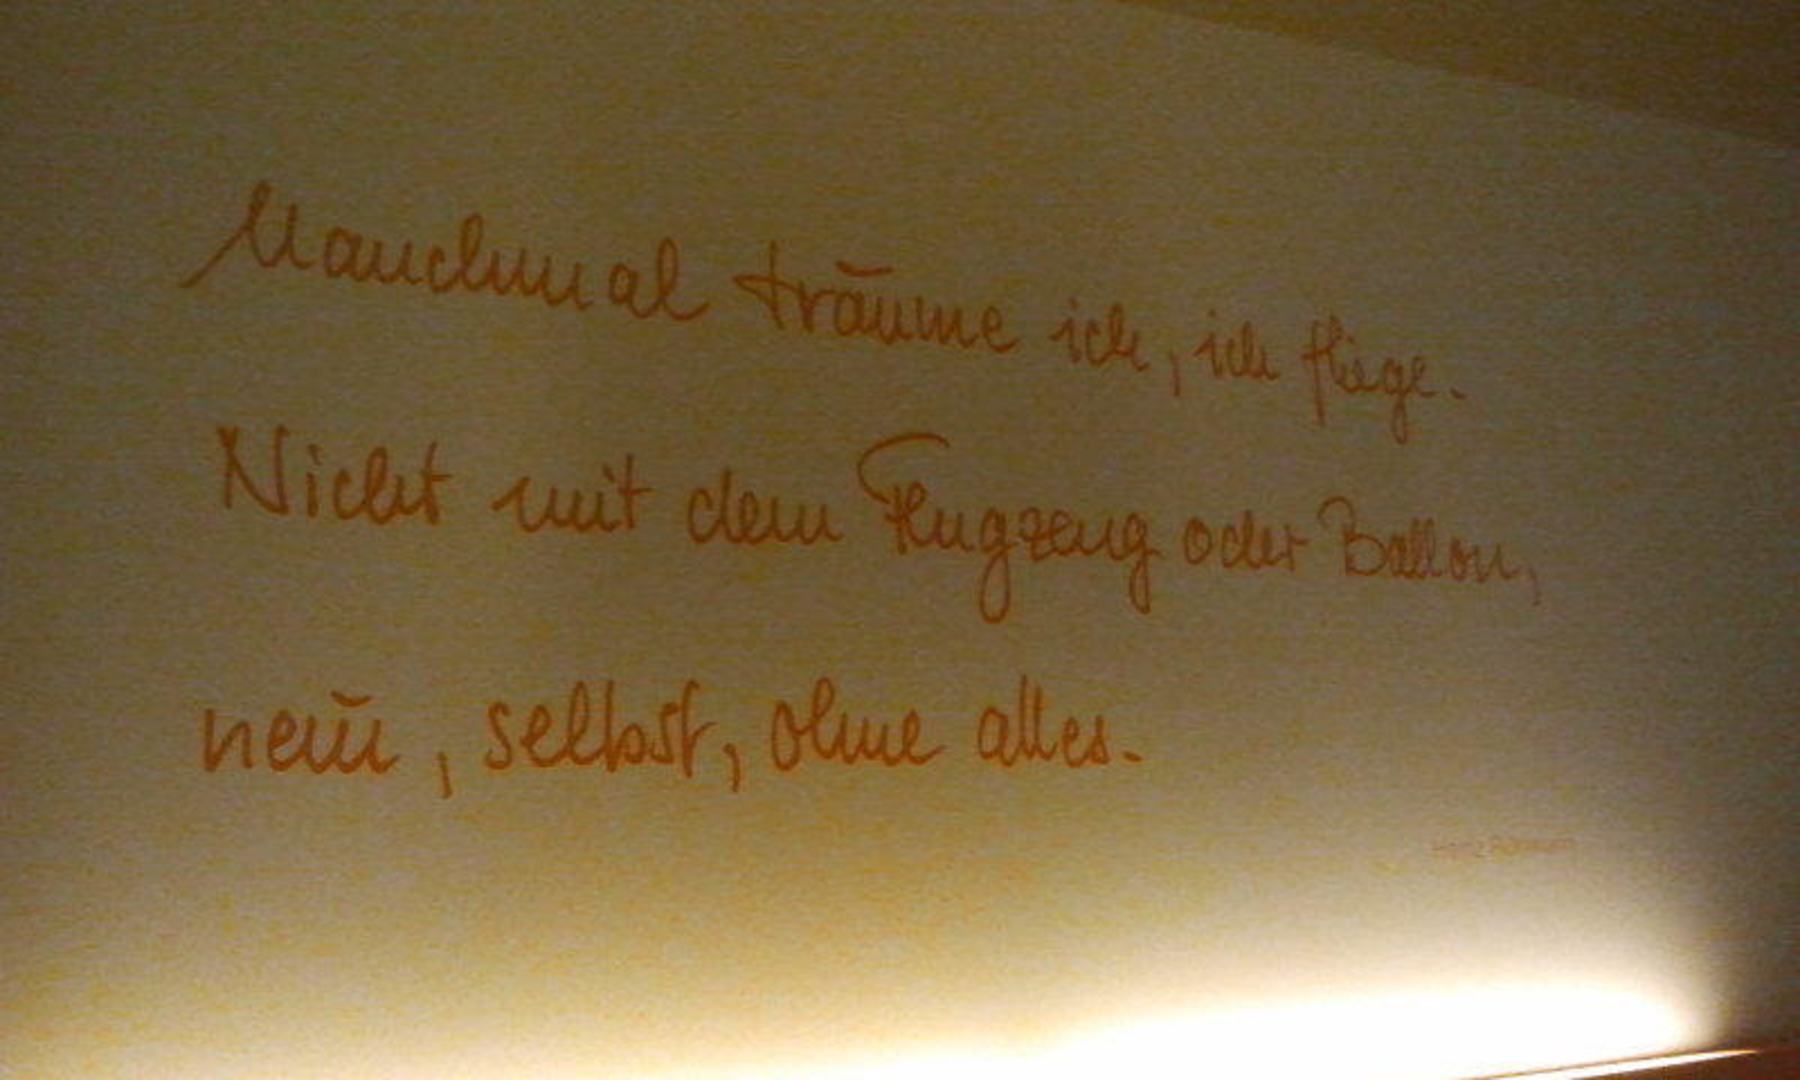 Manchmal träume ich, ich fliege.
Nicht mit dem Flugzeug oder Ballon,
nein, selbst, ohne alles.